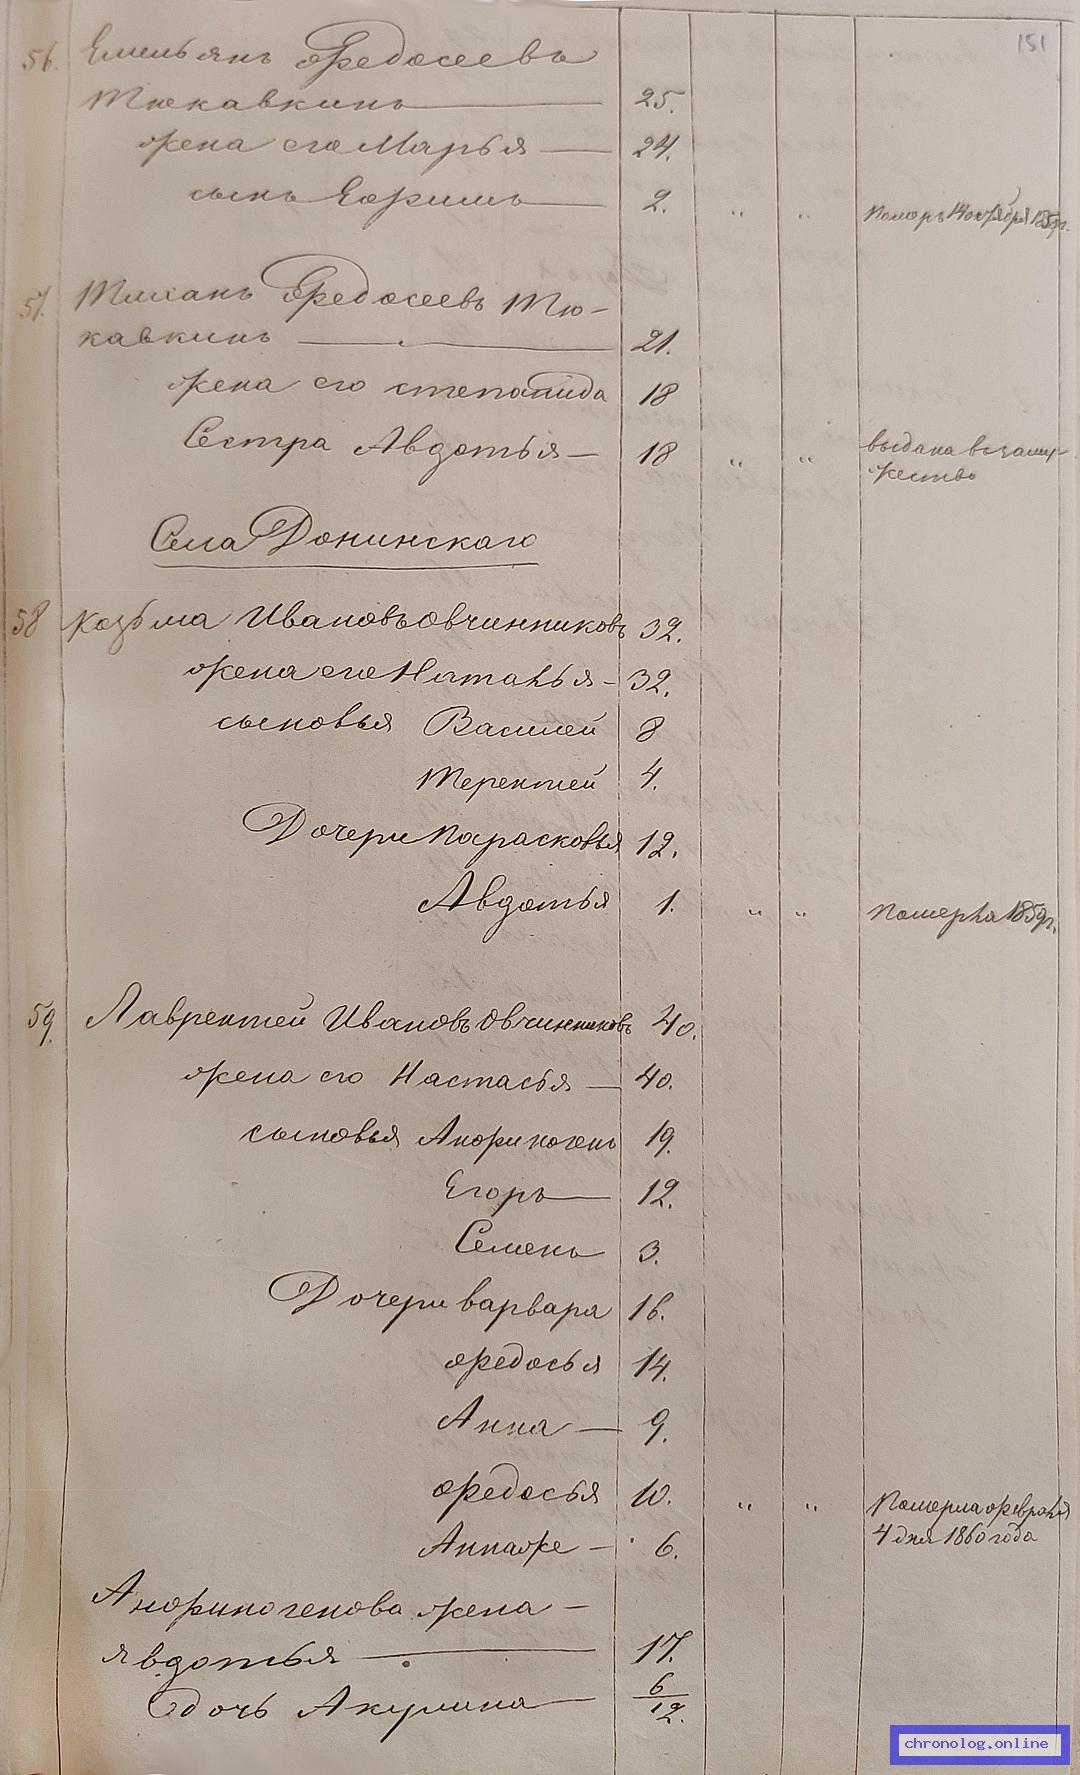 151
56. Емельянъ Федосеевъ
Тюкавкинъ 25.
жена его Марья 24.
сынъ Ефримъ 2. " " Померъ 14 октября 1859г.
57. Тиханъ Федосеевъ Тю-
кавкинъ 21.
жена его степанида 18
Сестра Авдотья 18 " " выдана взаму-
жество
Села Донинскаго
58 Козьма Ивановъ Овчинниковъ 32.
жена его Наталья 32.
сыновья Василей 8
Терентей 4.
Дочери Парасковья 12.
Авдотья 1. " " Померла 1859г.
59. Лаврентей Ивановъ Овчинниковъ 40.
жена его Настасья 40.
сыновья Анфиногенъ 19.
Егоръ 12.
Семенъ 3.
Дочери варвара 16.
федосья 14.
Анна 9.
федосья 10. " " Померла февраля
4 дня 1860 года
Аннаже 6.
Анфиногенова жена
явдотья 17.
дочь Акулина 6/12.
chronolog.online